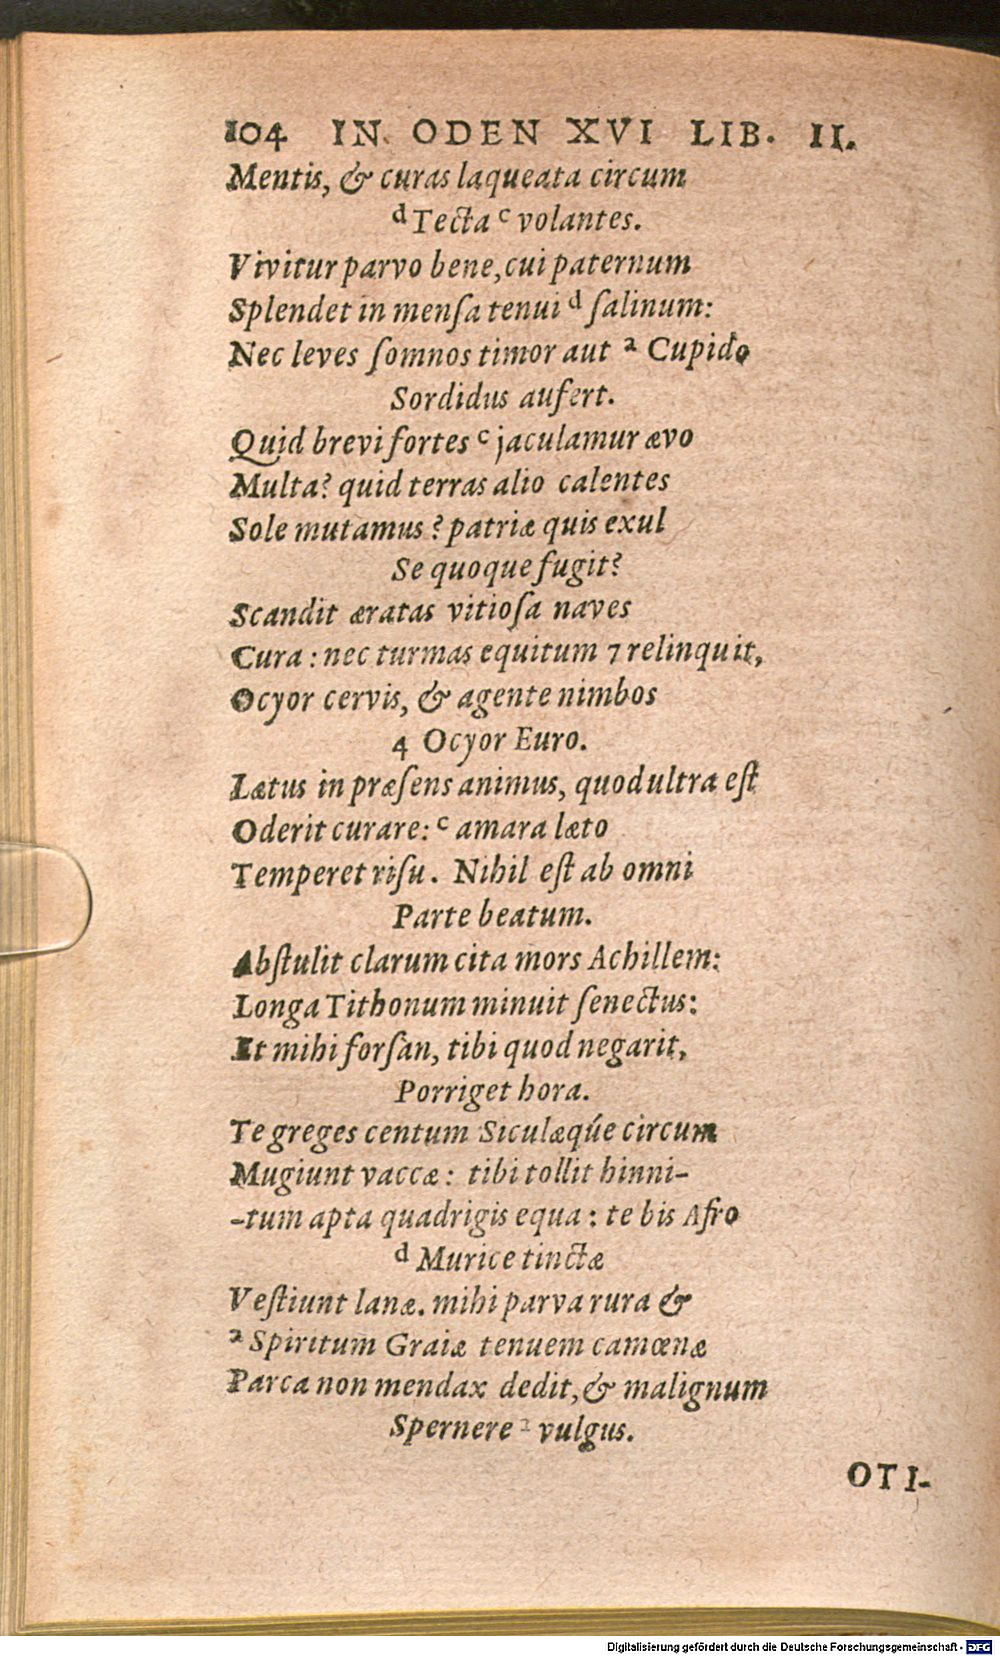 104 IN ODEN XVI LIB. II.
Mentis, & curas laqueata circum
ᵈ Tecta ᶜ volantes.
Vivitur parvo bene, cui paternum
Splendet in menſa tenui ᵈ ſalinum:
Nec leves ſomnos timor aut ᵃ Cupido
Sordidus aufert.
Quid brevi fortes ᶜ jaculamur ævo
Multa? quid terras alio calentes
Sole mutamus? patriæ quis exul
Se quoque fugit?
Scandit æratas vitioſa naves
Cura: nec turmas equitum ⁊ relinquit,
Ocyor cervis, & agente nimbos
4 Ocyor Euro.
Lætus in præſens animus, quod ultra eſt
Oderit curare: ᶜ amara læto
Temperet riſu. Nihil eſt ab omni
Parte beatum.
Abſtulit clarum cita mors Achillem:
Longa Tithonum minuit ſenectus:
Et mihi forſan, tibi quod negarit,
Porriget hora.
Te greges centum Siculæq́ue circum
Mugiunt vaccæ: tibi tollit hinni-
-tum apta quadrigis equa: te bis Afro
ᵈ Murice tinctæ
Veſtiunt lanæ. mihi parva rura &
ᵃ Spiritum Graiæ tenuem camœnæ
Parca non mendax dedit, & malignum
Spernere ᵃ vulgus.
OTI-
Digitalisierung gefördert durch die Deutsche Forschungsgemeinschaft - DFG